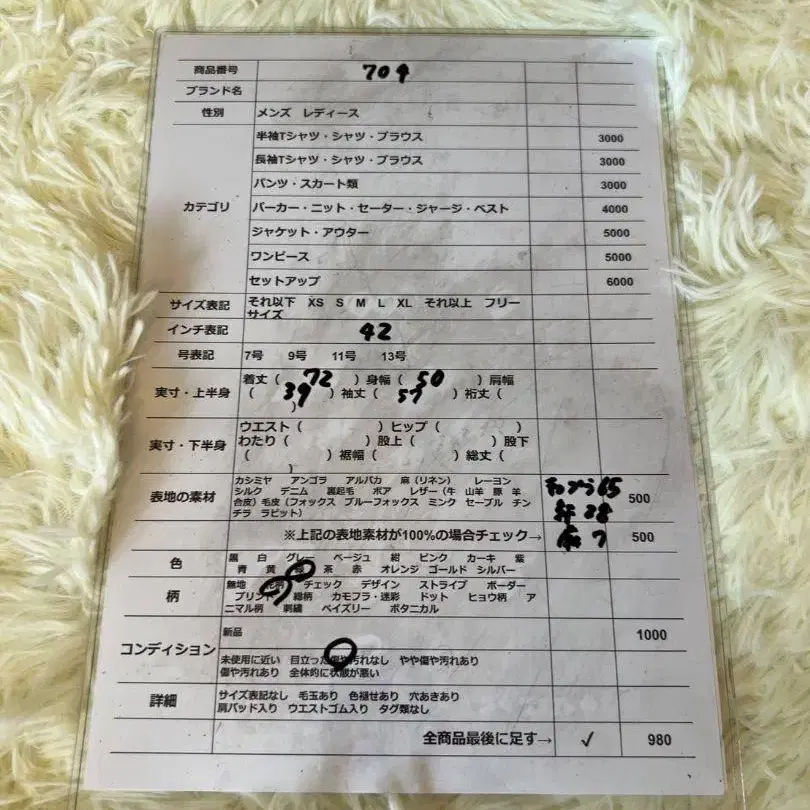 商品番号 704
ブランド名
性別 メンズ レディース
カテゴリ
半袖Tシャツ・シャツ・ブラウス 3000
長袖Tシャツ・シャツ・ブラウス 3000
パンツ・スカート類 3000
パーカー・ニット・セーター・ジャージ・ベスト 4000
ジャケット・アウター 5000
ワンピース 5000
セットアップ 6000
サイズ表記 それ以下 XS S M L XL それ以上 フリー
サイズ
インチ表記 42
号表記 7号 9号 11号 13号
実寸・上半身 着丈（ 72 ）身幅（ 50 ）肩幅
（ 39 ）袖丈（ 57 ）裄丈（
）
実寸・下半身 ウエスト（ ）ヒップ（ ）
わたり（ ）股上（ ）股下
（ ）裾幅（ ）総丈（
）
表地の素材 カシミヤ アンゴラ アルパカ 麻（リネン） レーヨン
シルク デニム 裏起毛 ボア レザー（牛 山羊 豚 羊
合皮）毛皮（フォックス ブルーフォックス ミンク セーブル チン
チラ ラビット） 500
65
28
7
※上記の表地素材が100%の場合チェック→ 500
色 黒 白 グレー ベージュ 紺 ピンク カーキ 紫
青 黄 緑 茶 赤 オレンジ ゴールド シルバー
柄 無地 チェック デザイン ストライプ ボーダー
プリント 総柄 カモフラ・迷彩 ドット ヒョウ柄 ア
ニマル柄 刺繍 ペイズリー ボタニカル
コンディション 新品 1000
未使用に近い 目立った傷や汚れなし やや傷や汚れあり
傷や汚れあり 全体的に状態が悪い
詳細 サイズ表記なし 毛玉あり 色褪せあり 穴あきあり
肩パッド入り ウエストゴム入り タグ類なし
全商品最後に足す→ ✓ 980